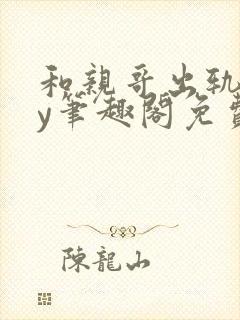 和親哥出轨
y筆趣閣免費
陳龍山